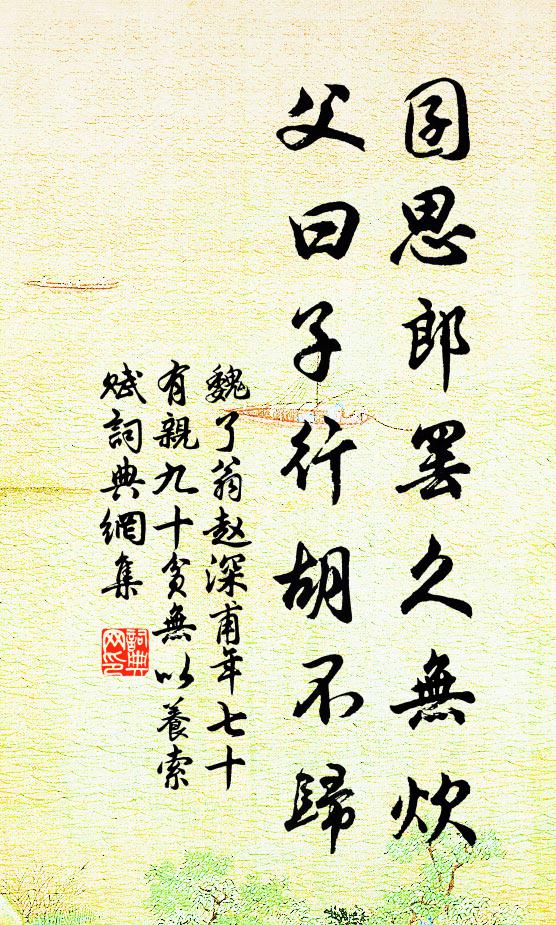 囝思郎罢久無炊
父曰子行胡不歸
魏了翁赵深甫年七十
有親九十貧無以養索
賦詞典網集
詞典
网印